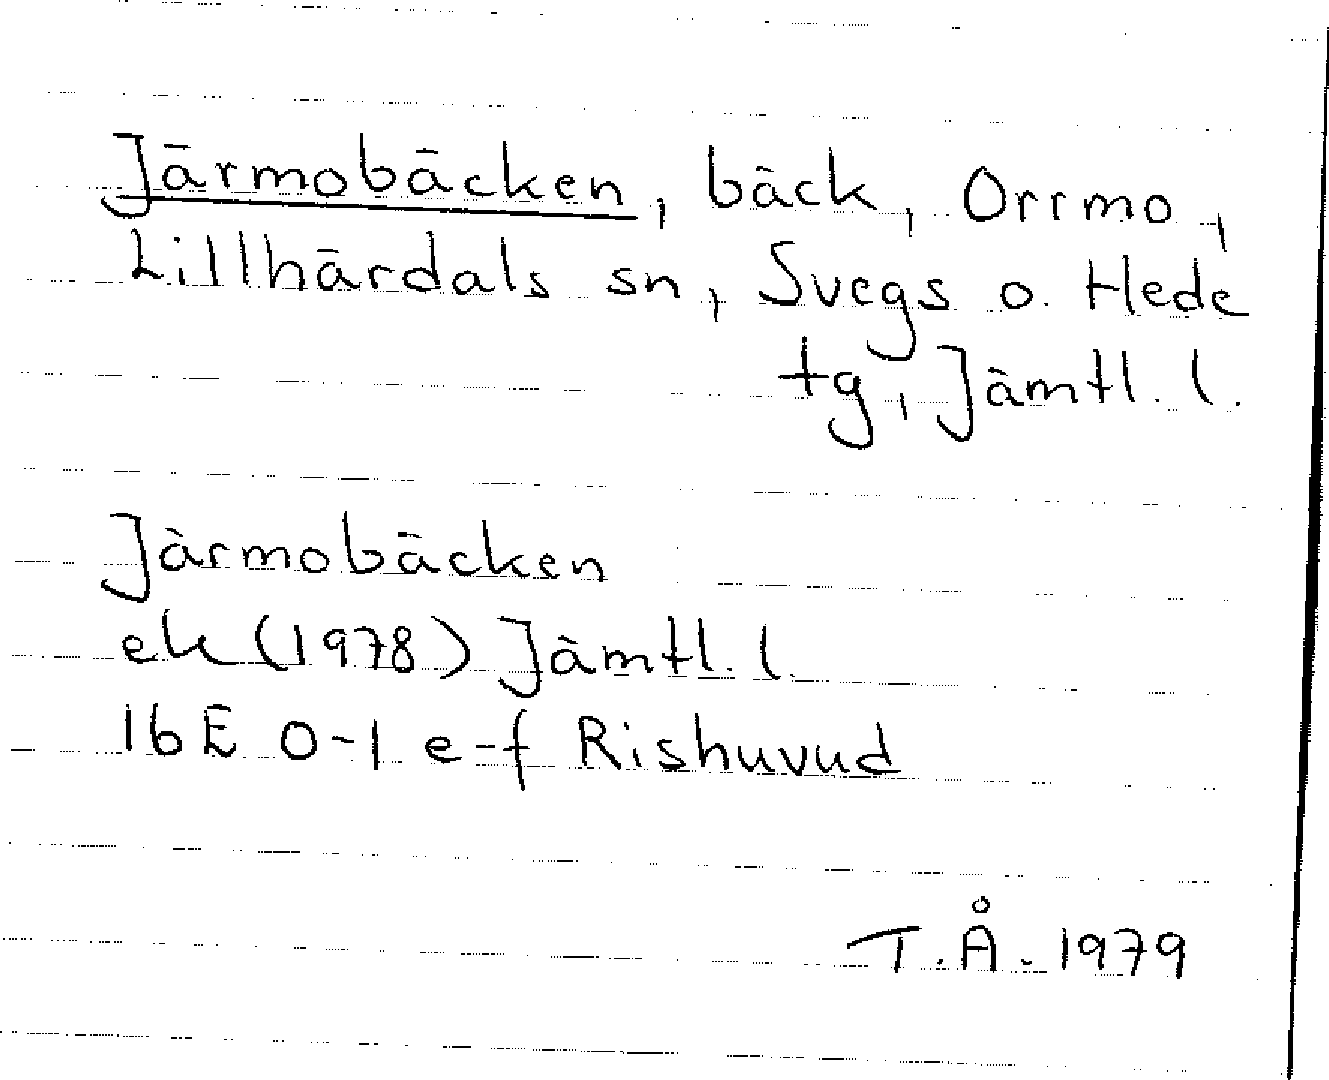 Järmobäcken, bäck, Orrmo,
Lillhärdals sn, Svegs o. Hede
tg, Jämtl. l.
Järmobäcken
ek (1978) Jämtl. l.
16E 0-1 e-f Rishuvud
T.Å. 1979